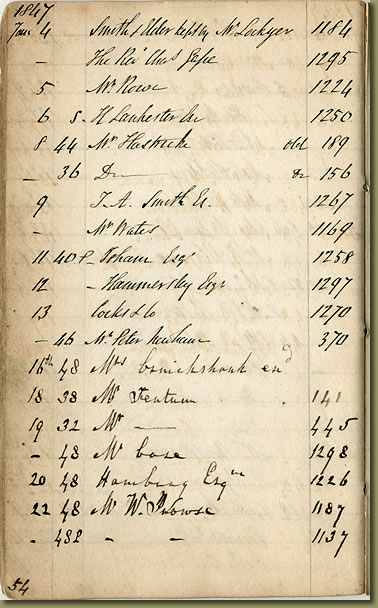 1847
Jan 4 Smith & Elder kept by Mr Lockyer 1184
– The Revd Chas Jape 1295
5 Mr Rowe 1224
6 8 – H Lankester Jnr 1250
8 44 Mr old 189
– 36 Do —— Do 156
9 J. A. Smith 1267
– Mr Waters 1169
11 40 P – Isham Esqr 1258
12 – Hammersley Esqr 1297
13 Cocks & Co 1270
– 46 Mr Peter 370
16th 48 Mrs Cruickshank end
18 38 Mr Fentum . 141
19 32 Mr —— 445
– 48 Mr Case 1298
20 48 Hamburg Esqre 1226
22 48 Mr W. Prowse 1187
- 482 – – 1137
54